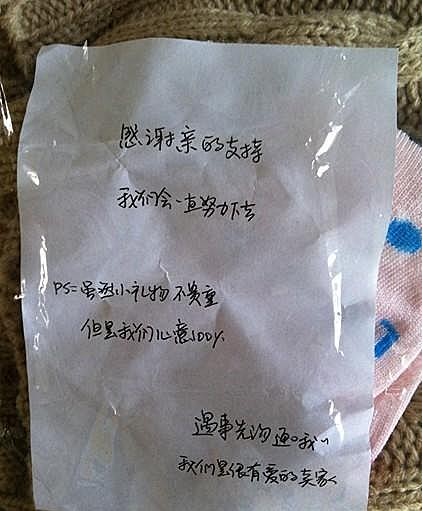 感谢亲的支持
我们会一直努力下去
PS=虽这小礼物不贵重
但是我们心意100%
遇事先沟通。我~
我们是很有爱的卖家